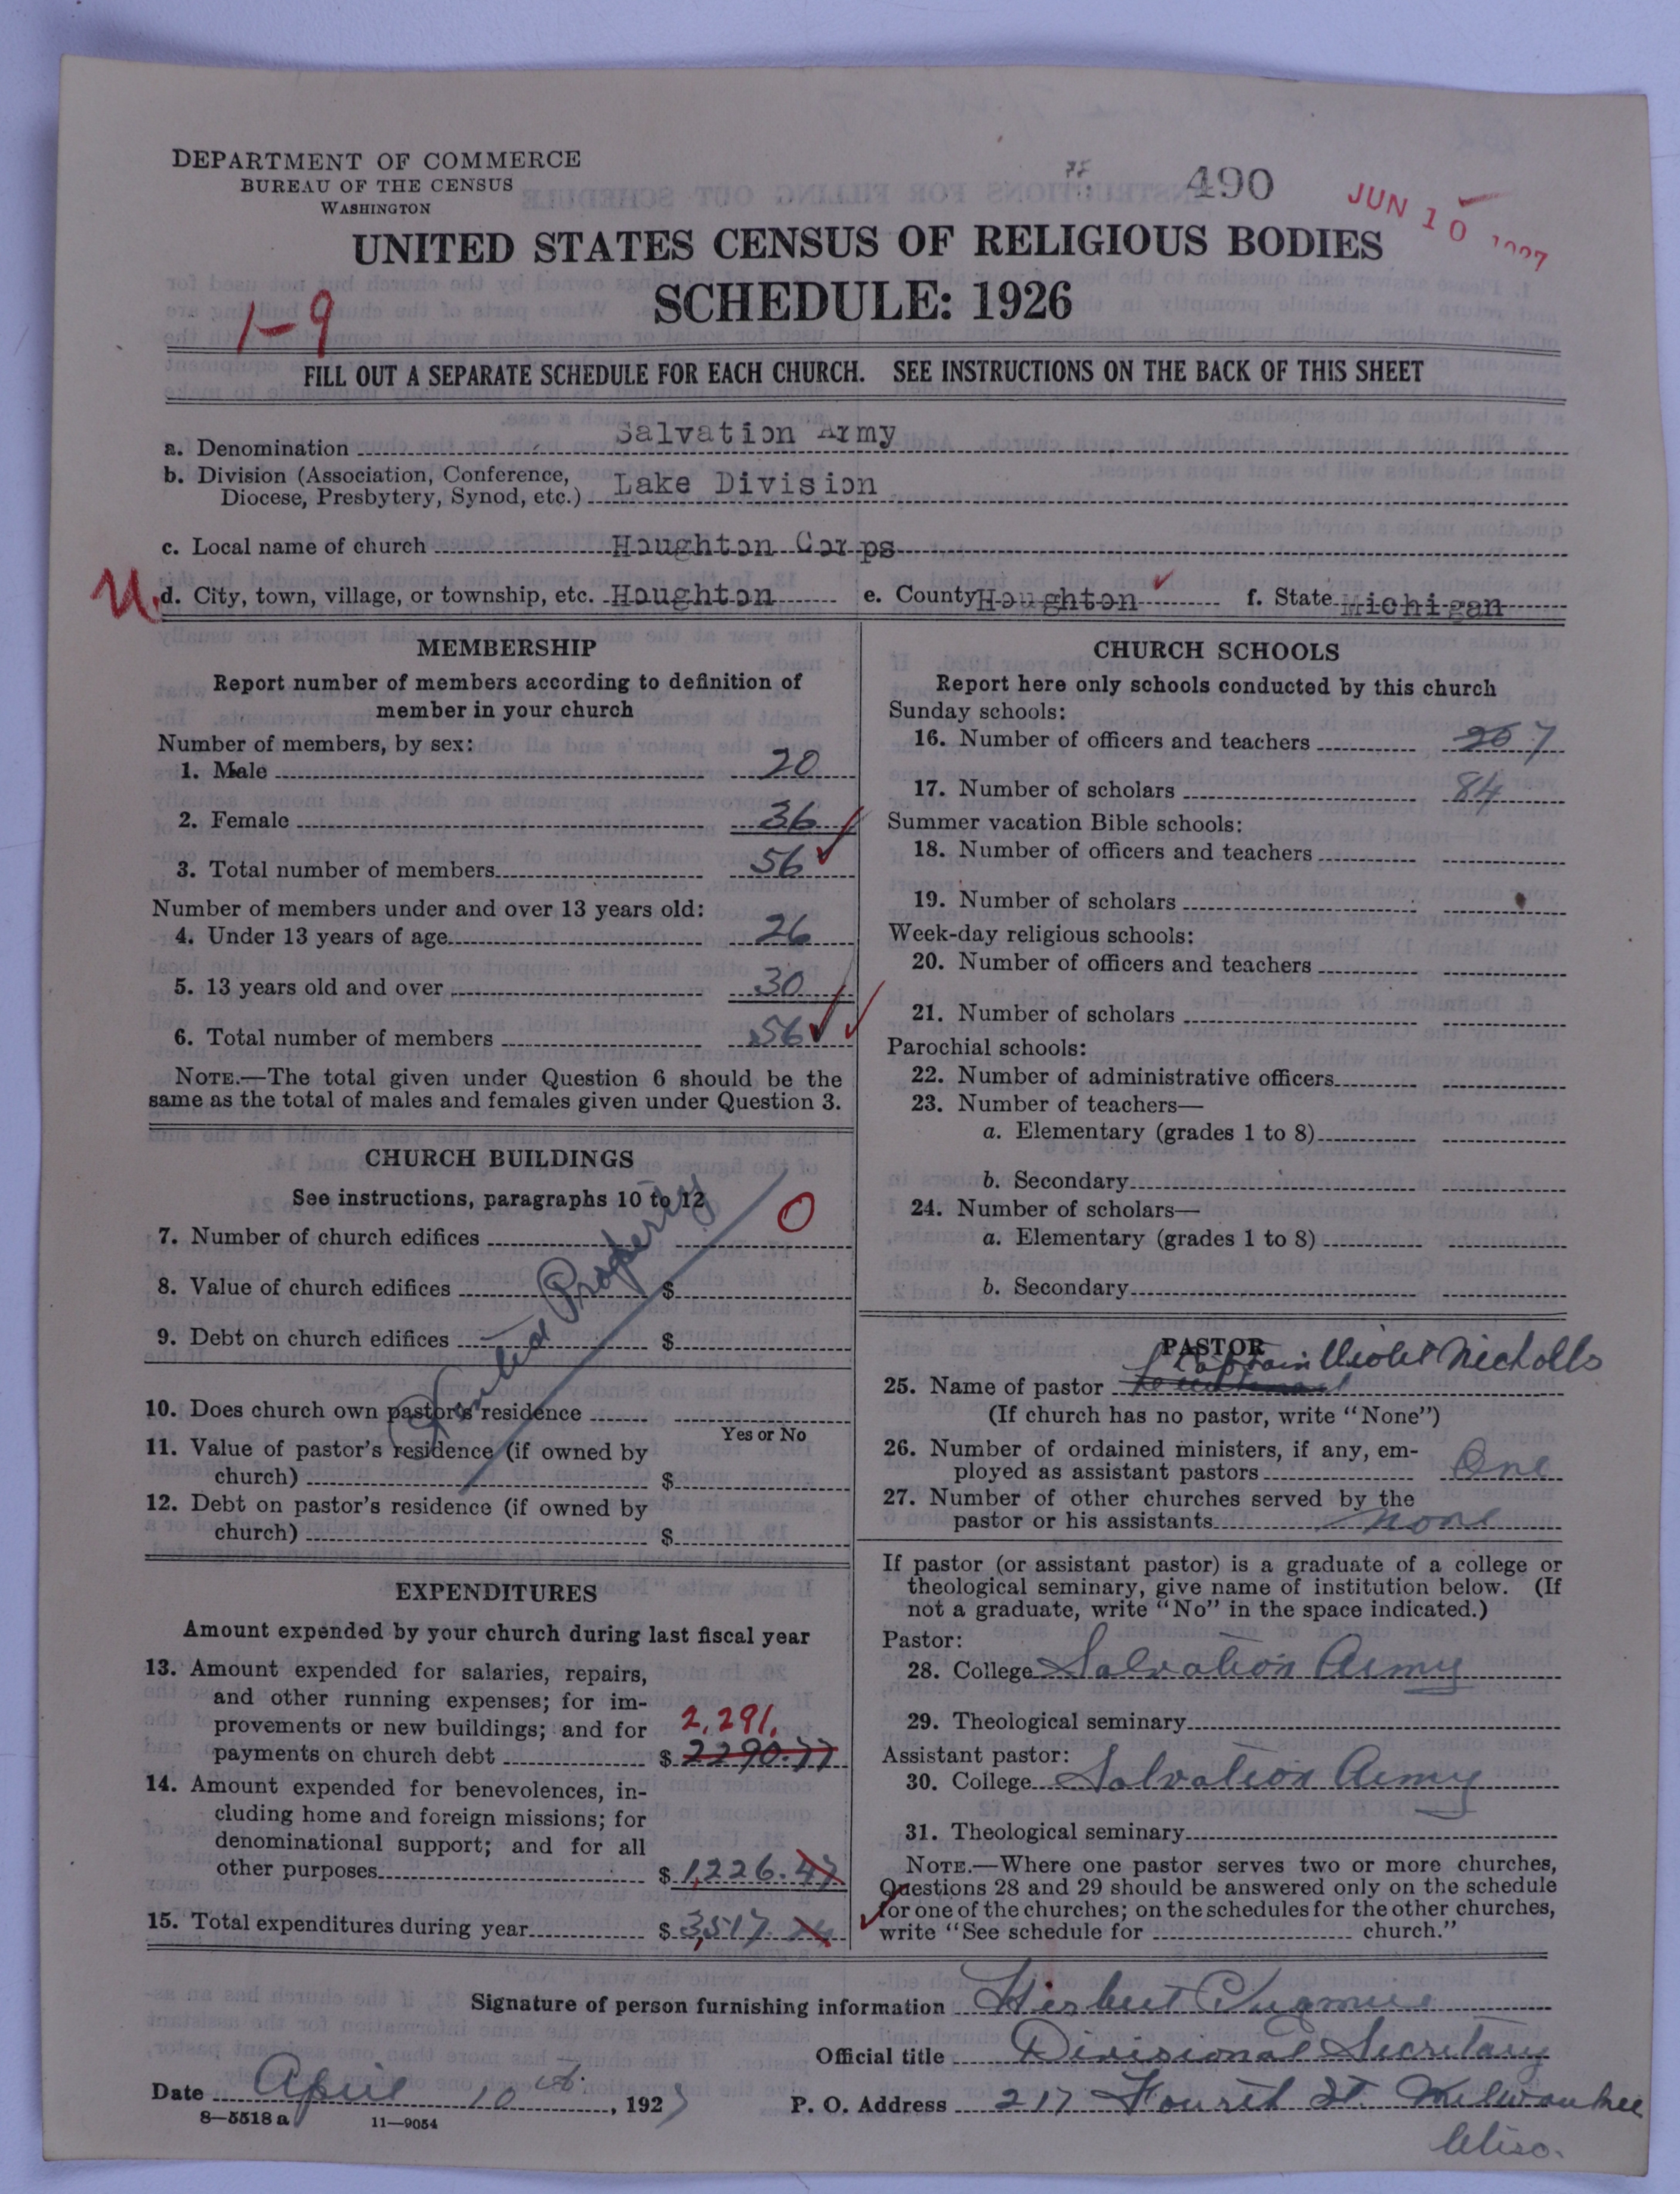 DEPARTMENT OF COMMERCE
BUREAU OF THE CENSUS
WASHINGTON
490
JUN 10 1927
UNITED STATES CENSUS OF RELIGIOUS BODIES
SCHEDULE: 1926
1-9
FILL OUT A SEPARATE SCHEDULE FOR EACH CHURCH. SEE INSTRUCTIONS ON THE BACK OF THIS SHEET
a. Denomination Salvation Army
b. Division (Association, Conference,
Diocese, Presbytery, Synod, etc.) Lake Division
c. Local name of church Houghton Corps
U. d. City, town, village, or township, etc. Houghton e. County Houghton f. State Michigan
MEMBERSHIP
Report number of members according to definition of
member in your church
Number of members, by sex:
1. Male 20
2. Female 36
3. Total number of members 56
Number of members under and over 13 years old:
4. Under 13 years of age 26
5. 13 years old and over 30
6. Total number of members 56
NOTE.—The total given under Question 6 should be the
same as the total of males and females given under Question 3.
CHURCH BUILDINGS
See instructions, paragraphs 10 to 12
7. Number of church edifices 0
8. Value of church edifices $
9. Debt on church edifices $
10. Does church own pastor's residence
Yes or No
11. Value of pastor's residence (if owned by
church) $
12. Debt on pastor's residence (if owned by
church) $
Rented Property
EXPENDITURES
Amount expended by your church during last fiscal year
13. Amount expended for salaries, repairs,
and other running expenses; for im-
provements or new buildings; and for 2,291.
payments on church debt $ 2290.77
14. Amount expended for benevolences, in-
cluding home and foreign missions; for
denominational support; and for all
other purposes $ 1,226.47
15. Total expenditures during year $ 3,517.24
CHURCH SCHOOLS
Report here only schools conducted by this church
Sunday schools:
16. Number of officers and teachers 7
17. Number of scholars 84
Summer vacation Bible schools:
18. Number of officers and teachers
19. Number of scholars
Week-day religious schools:
20. Number of officers and teachers
21. Number of scholars
Parochial schools:
22. Number of administrative officers
23. Number of teachers—
a. Elementary (grades 1 to 8)
b. Secondary
24. Number of scholars—
a. Elementary (grades 1 to 8)
b. Secondary
PASTOR
25. Name of pastor Captain Violet Nicholls
(If church has no pastor, write "None")
26. Number of ordained ministers, if any, em-
ployed as assistant pastors One
27. Number of other churches served by the
pastor or his assistants none
If pastor (or assistant pastor) is a graduate of a college or
theological seminary, give name of institution below. (If
not a graduate, write "No" in the space indicated.)
Pastor:
28. College Salvation Army
29. Theological seminary
Assistant pastor:
30. College Salvation Army
31. Theological seminary
NOTE.—Where one pastor serves two or more churches,
Questions 28 and 29 should be answered only on the schedule
for one of the churches; on the schedules for the other churches,
write "See schedule for church."
Signature of person furnishing information Herbert
Official title Divisional Secretary
Date April 10th, 1927 P. O. Address 217 Fourth St. Milwaukee
Wisc.
8—5518a 11—9054